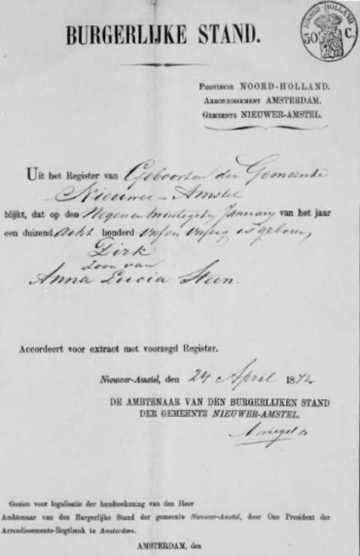 NOORD-HOLLAND
50 C.
BURGERLIJKE STAND.
PROVINCIE NOORD-HOLLAND.
ARRONDISSEMENT AMSTERDAM.
GEMEENTE NIEUWER-AMSTEL.
Uit het Register van Geboorten der Gemeente
Nieuwer-Amstel
blijkt, dat op den Negen en twintigsten January van het jaar
een duizend acht honderd vijf en vijftig is geboren
Dirk
zoon van
Anna Lucia Steen.
Accordeert voor extract met voorzegd Register.
Nieuwer-Amstel, den 24 April 1872
DE AMBTENAAR VAN DEN BURGERLIJKEN STAND
DER GEMEENTE NIEUWER-AMSTEL.
Gezien voor legalisatie der handteekening van den Heer
Ambtenaar van den Burgerlijke Stand der gemeente Nieuwer-Amstel, door Ons President der
Arrondissements-Regtbank te Amsterdam.
AMSTERDAM, den